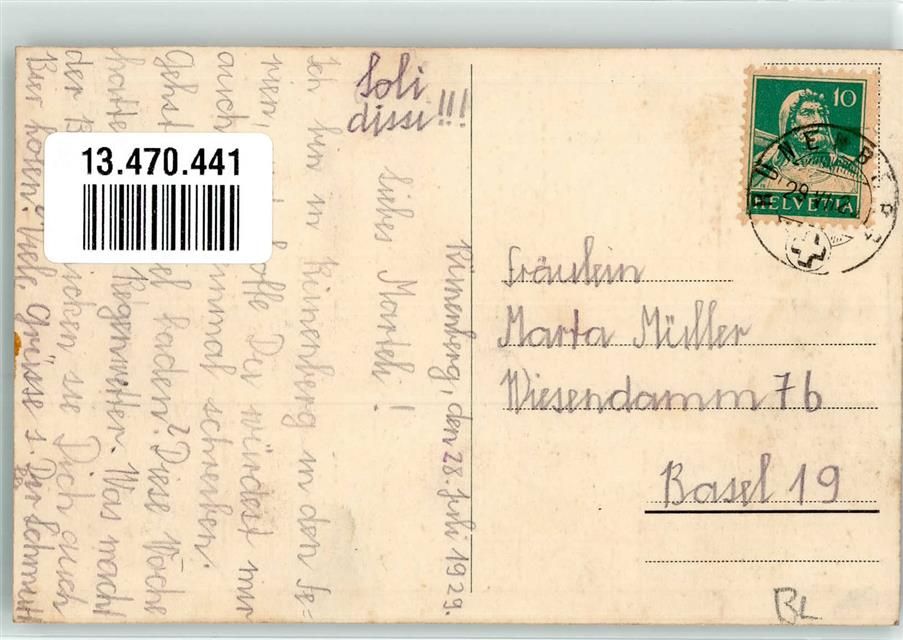 Soli
dissi!!!
Künenberg, den 28. Juli 1929.
Liebes Marteli!
Ich bin in Künenberg in den Fe-
rien hoffe Du würdest mir
auch einmal schreiben.
Gehst baden? Diese Woche
hatte Regenwetter. Was macht
der sie Dich auch
Bier holen? Viele Grüsse s.
13.470.441
10
HELVETIA
Fräulein
Marta Müller
Wiesendamm 7b
Basel 19
BL